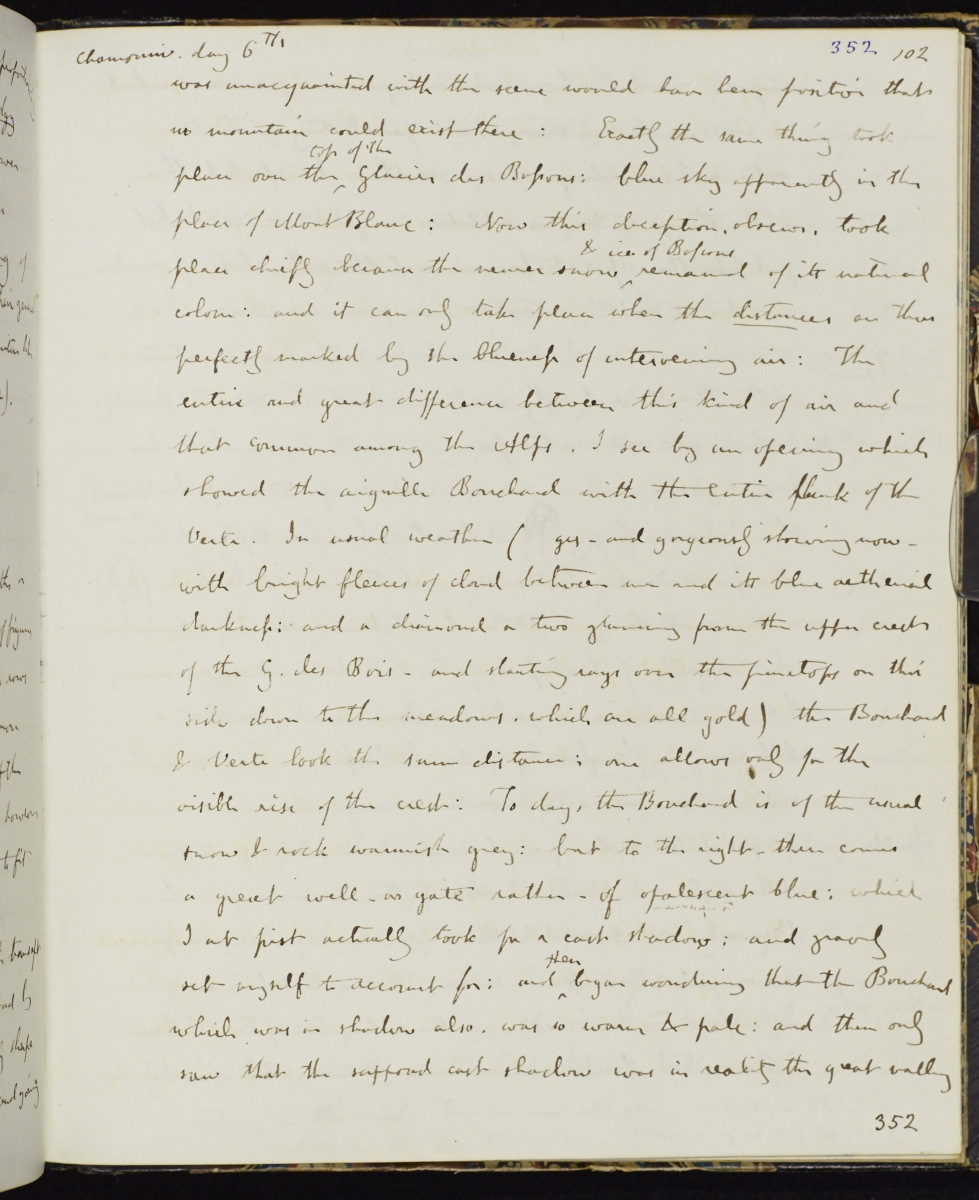 Chamouni. day 6th 352 102
was unacquainted with the scene would have been positive that
no mountain could exist there : Exactly the same thing took
top of the
place over the ^ Glacier des Bossons : blue sky apparently in the
place of Mont Blanc : Now this deception, observe, took
& ice of Bossons
place chiefly because the nearer snow ^ remained of its natural
colour : and it can only take place when the distances are thus
perfectly marked by the blueness of intervening air : The
entire and great difference between this kind of air and
that common among the Alps, I see by an opening which
showed the aiguille Bouchard with the entire flank of the
Verte. In usual weather ( yes - and gorgeously showing now -
with bright fleeces of cloud between me and its blue aetherial
darkness : and a diamond or two glancing from the upper crests
of the G. des Bois - and slanting rays over the pinetops on this
side down to the meadows, which are all gold) the Bouchard
& Verte look the same distance ; one allows only for the
visible rise of the crest : To day, the Bouchard is of the usual
snow & rock warmish grey : but to the right - there comes
a great well - or gate rather - of opalescent blue ; which
I at first actually took for a cast shadow ; and gravely
then
set myself to account for : and ^ began wondering that the Bouchard
which was in shadow also, was so warm & pale : and then only
saw that the supposd cast shadow was in reality the great valley
352